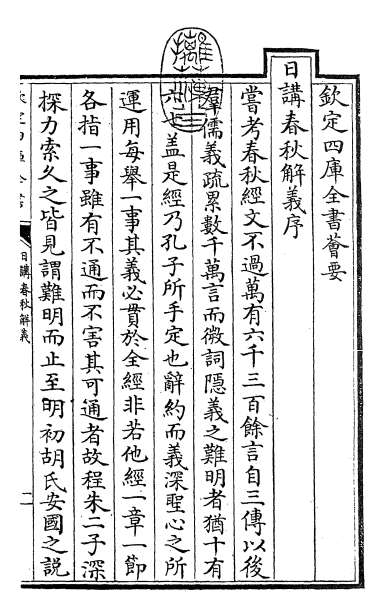 欽定四庫全書薈要
日講春秋解義序
嘗考春秋經文不過萬有六千三百餘言自三傳以後
羣儒義疏累數千萬言而微詞隱義之難明者猶十有
六七蓋是經乃孔子所手定也辭約而義深聖心之所
運用每舉一事其義必貫於全經非若他經一章一節
各指一事雖有不通而不害其可通者故程朱二子深
探力索久之皆見謂難明而止至明初胡氏安國之説
日講春秋解義